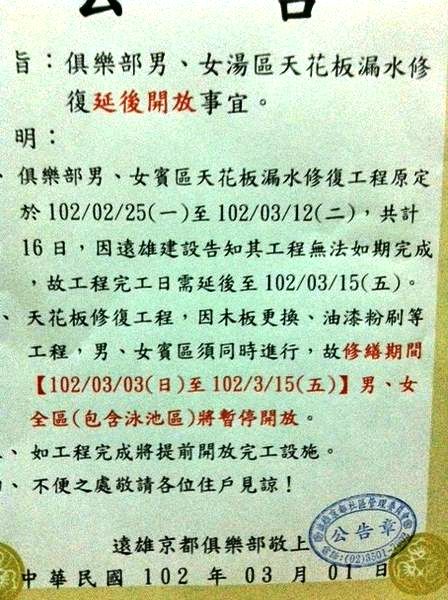 公 告
旨：俱樂部男、女湯區天花板漏水修
復延後開放事宜。
明：
、俱樂部男、女賓區天花板漏水修復工程原定
於102/02/25(一)至102/03/12(二)，共計
16日，因遠雄建設告知其工程無法如期完成
，故工程完工日需延後至102/03/15(五)。
、天花板修復工程，因木板更換、油漆粉刷等
工程，男、女賓區須同時進行，故修繕期間
【102/03/03(日)至102/3/15(五)】男、女
全區(包含泳池區)將暫停開放。
、如工程完成將提前開放完工設施。
、不便之處敬請各位住戶見諒！
遠雄京都俱樂部敬上
中華民國 102 年 03 月 01 日
遠雄京都社區管理委員會
公告章
電話:(02)3501-